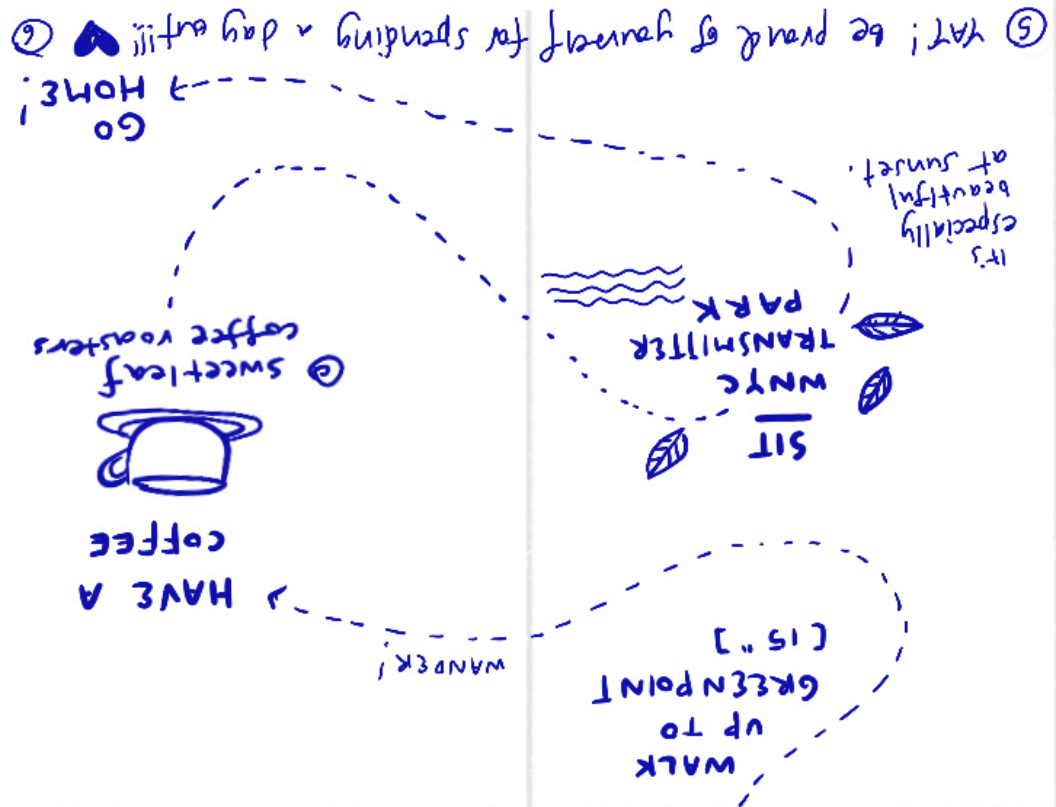 WALK
UP TO
GREENPOINT
[15"]
WANDER!
HAVE A
COFFEE
@ sweetleaf
coffee roasters
SIT
WNYC
TRANSMITTER
PARK
It's
especially
beautiful
at sunset.
GO
HOME!
5 YAY! be proud of yourself for spending a day out!!! 6